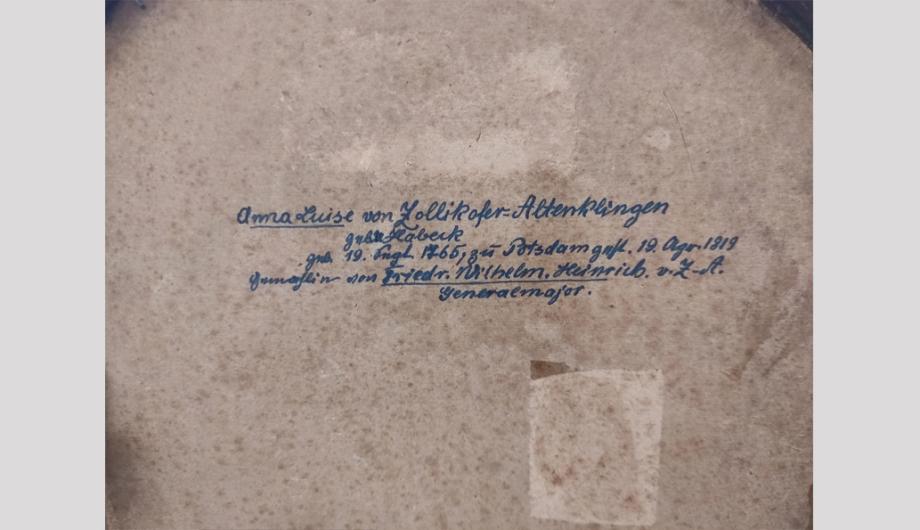 Anna Luise von Zollikofer-Altenklingen
Habeck
geb. 19. 1765, zu Potsdam gest. 19. Apr. 1819
Gemahlin von Friedr. Wilhelm. Heinrich. v. Z-A.
Generalmajor.